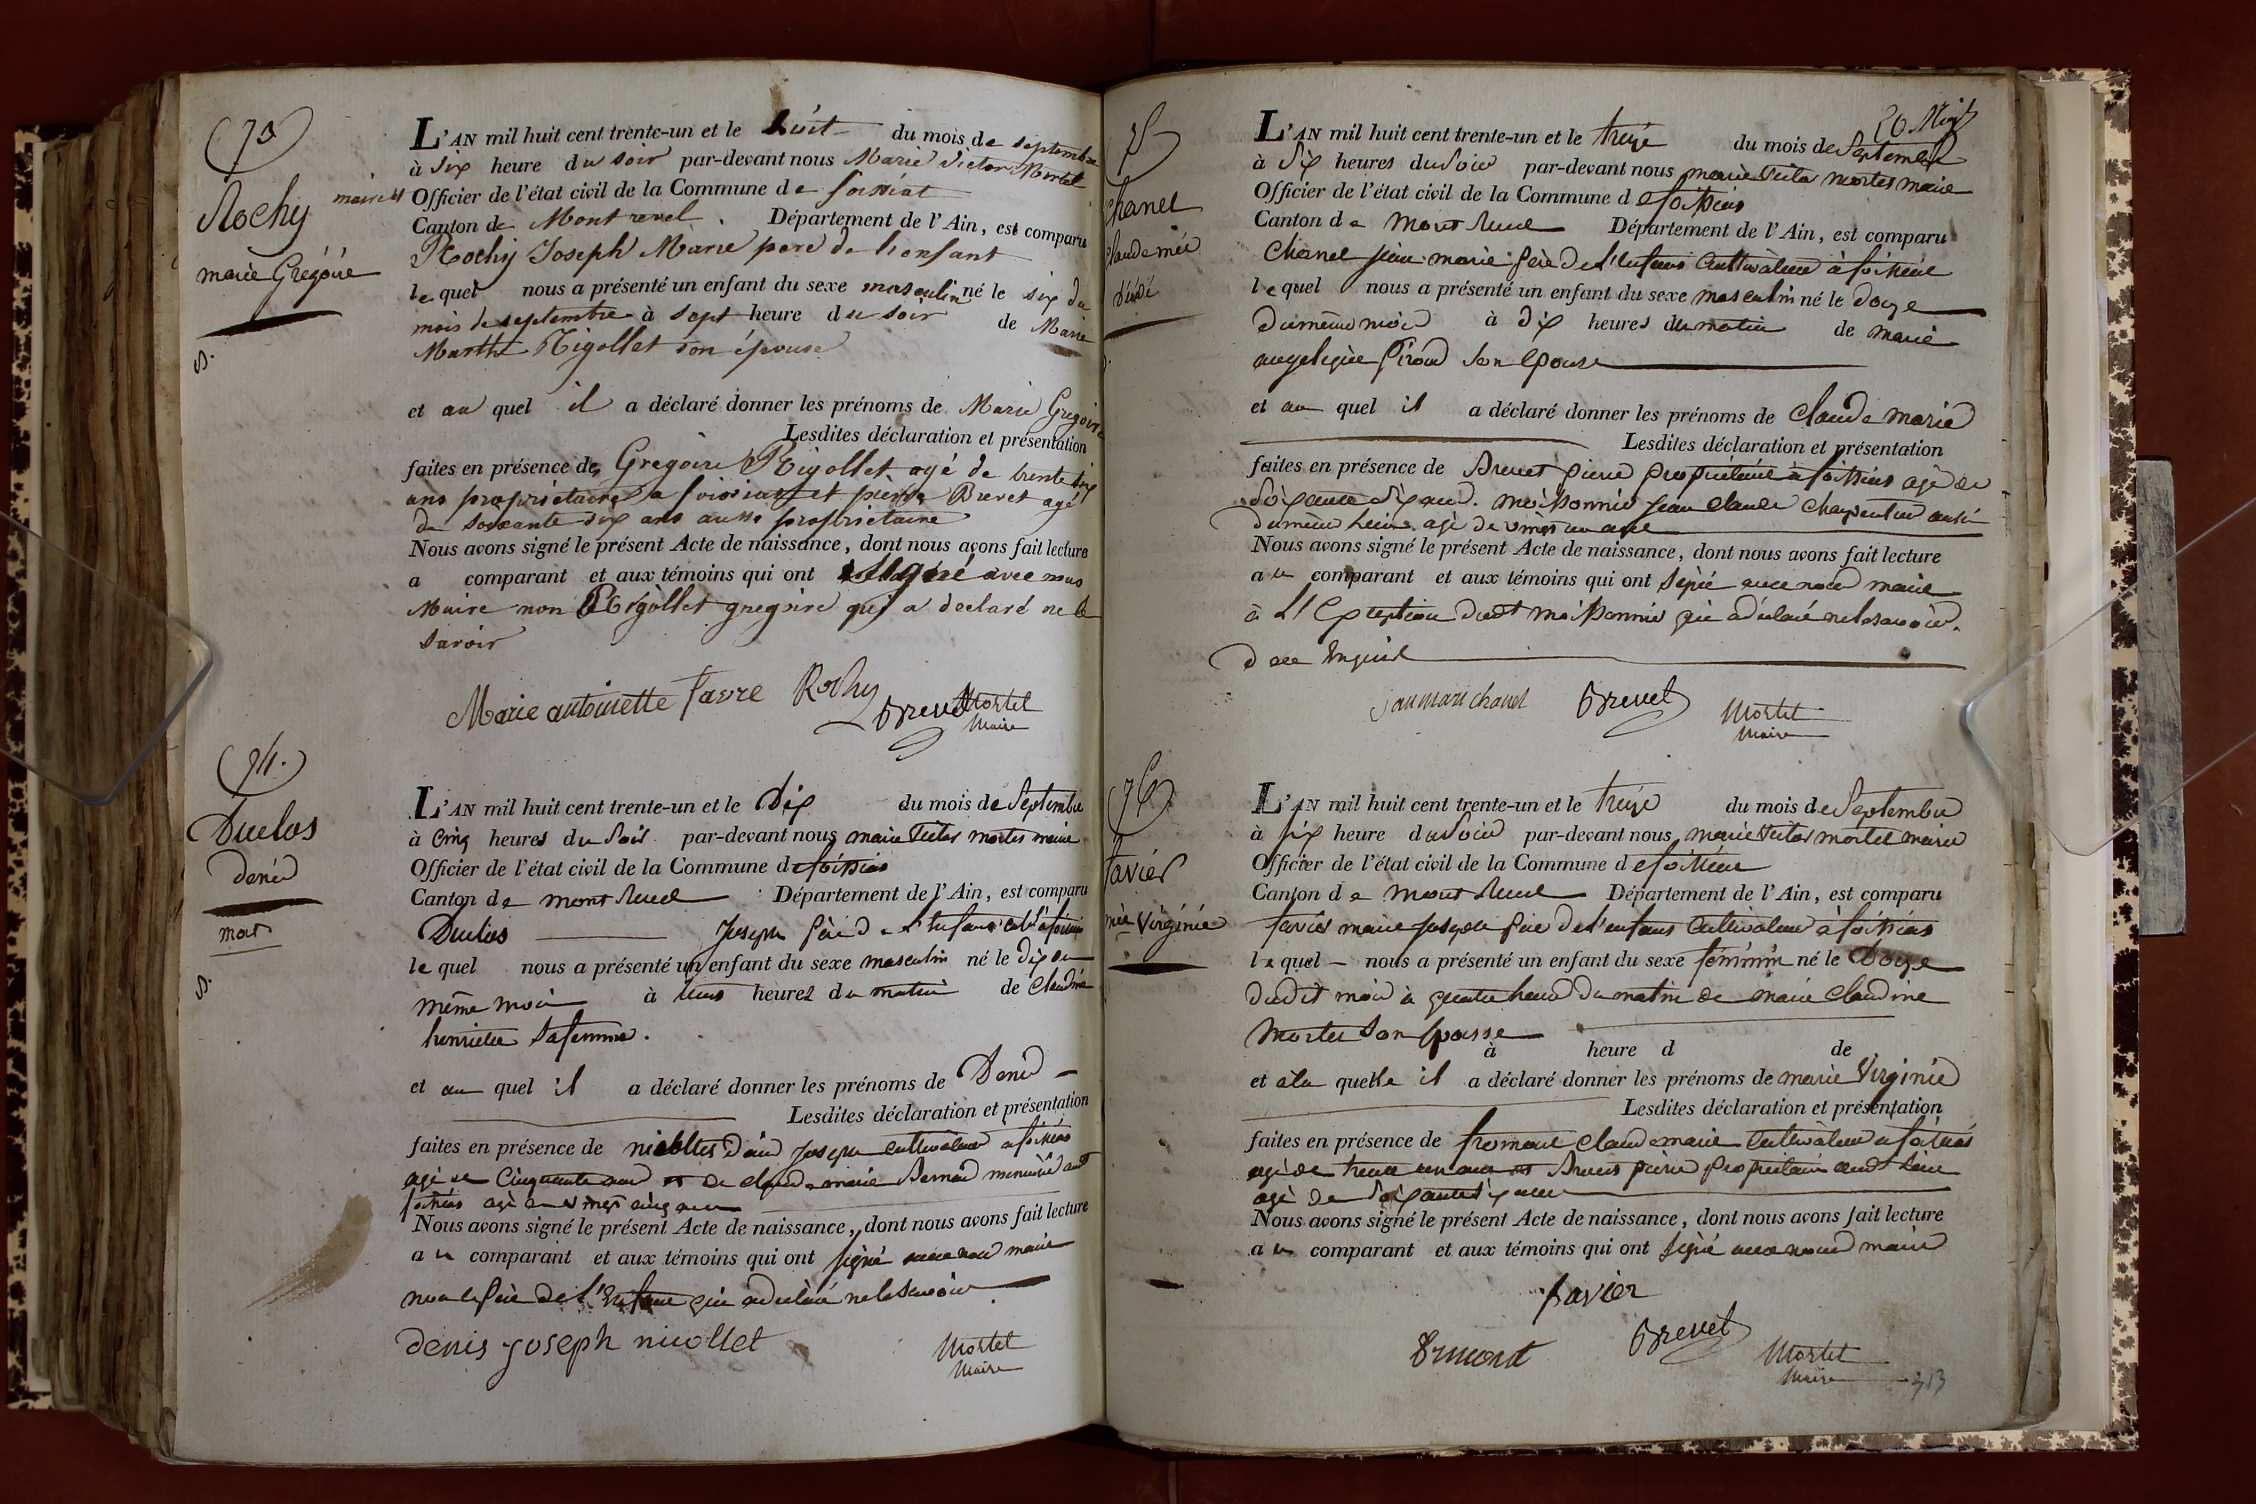 73
Rochy
marie Grégoire
S.
L'AN mil huit cent trente-un et le huit du mois de septembre
à six heure du soir par-devant nous Marie Victor Mortel
maire et Officier de l'état civil de la Commune de foissiat
Canton de Mont revel. Département de l'Ain, est comparu
Rochy Joseph Marie pere de l'enfant
lequel nous a présenté un enfant du sexe masculin né le six du
mois de septembre à sept heure du soir de Marie
Marthe Rigollet son épouse
et au quel il a déclaré donner les prénoms de Marie Gregoire
Lesdites déclaration et présentation
faites en présence de Gregoire Rigollet agé de trente six
ans propriétaire a foissiat et pierre Brevet agé
de soixante dix ans aussi propriétaire
Nous avons signé le présent Acte de naissance, dont nous avons fait lecture
a comparant et aux témoins qui ont signé avec nous
Maire non Rigollet gregoire qui a declaré ne le
savoir
Marie antoinette favre Rochy Brevet Mortel
Maire
74.
Duclos
Denis
mort
S.
L'AN mil huit cent trente-un et le Dix du mois de Septembre
à cinq heures du Soir par-devant nous marie Victor mortel maire
Officier de l'état civil de la Commune de foissias
Canton de mont Revel Département de l'Ain, est comparu
Duclos Joseph père de l'enfant
lequel nous a présenté un enfant du sexe masculin né le dix du
même mois à heures du matin de Claudine
henriette Sa femme.
et au quel il a déclaré donner les prénoms de Denis
Lesdites déclaration et présentation
faites en présence de nicolllet Denis Joseph cultivateur a foissias
agé de Cinquante ans et de claude marie Bernard menuisier
foissias agé de vingt cinq ans
Nous avons signé le présent Acte de naissance, dont nous avons fait lecture
au comparant et aux témoins qui ont signé avec nous maire
non le père de l'Enfant qui a déclaré ne le savoir
denis joseph nicollet Mortel
Maire
75
Chanel
Claude mie
décédé
20 Migt
L'AN mil huit cent trente-un et le treize du mois de Septembre
à Six heures du Soir par-devant nous marie Victor mortel maire
Officier de l'état civil de la Commune de foissias
Canton de Mont Revel Département de l'Ain, est comparu
Chanel jean marie père de l'enfant Cultivateur à foissiat
lequel nous a présenté un enfant du sexe masculin né le Douze
du même mois à dix heures du matin de marie
angelique Piroud Son Epouse
et au quel il a déclaré donner les prénoms de Claude marie
Lesdites déclaration et présentation
faites en présence de Brevet pierre propriétaire à foissias agé de
Soixante dix ans. moissonnier jean claude charpentier
du même lieu agé de vingt un ans
Nous avons signé le présent Acte de naissance, dont nous avons fait lecture
au comparant et aux témoins qui ont signé avec nous maire
à L'Exception dudt moissonnier qui a déclaré ne le savoir.
de ce Enquis
jan mari chanel Brevet Mortel
Maire
76
favier
mie Virginie
L'AN mil huit cent trente-un et le treize du mois de Septembre
à six heure du Soir par-devant nous, marie Victor mortel maire
Officier de l'état civil de la Commune de foissiat
Canton de Mont Revel Département de l'Ain, est comparu
favier marie Joseph père de l'enfant Cultivateur à foissias
lequel nous a présenté un enfant du sexe féminin né le Douze
dudit mois à quatre heure du matin de marie Claudine
Mortel Son Epouse
à heure d de
et a la quelle il a déclaré donner les prénoms de marie Virginie
Lesdites déclaration et présentation
faites en présence de fromont claude marie Cultivateur a foissias
agé de trente un ans et Brevet pierre propriétaire audt lieu
agé de Soixante dix ans
Nous avons signé le présent Acte de naissance, dont nous avons fait lecture
au comparant et aux témoins qui ont signé avec nous maire
favier
fromont Brevet Mortel
Maire
313